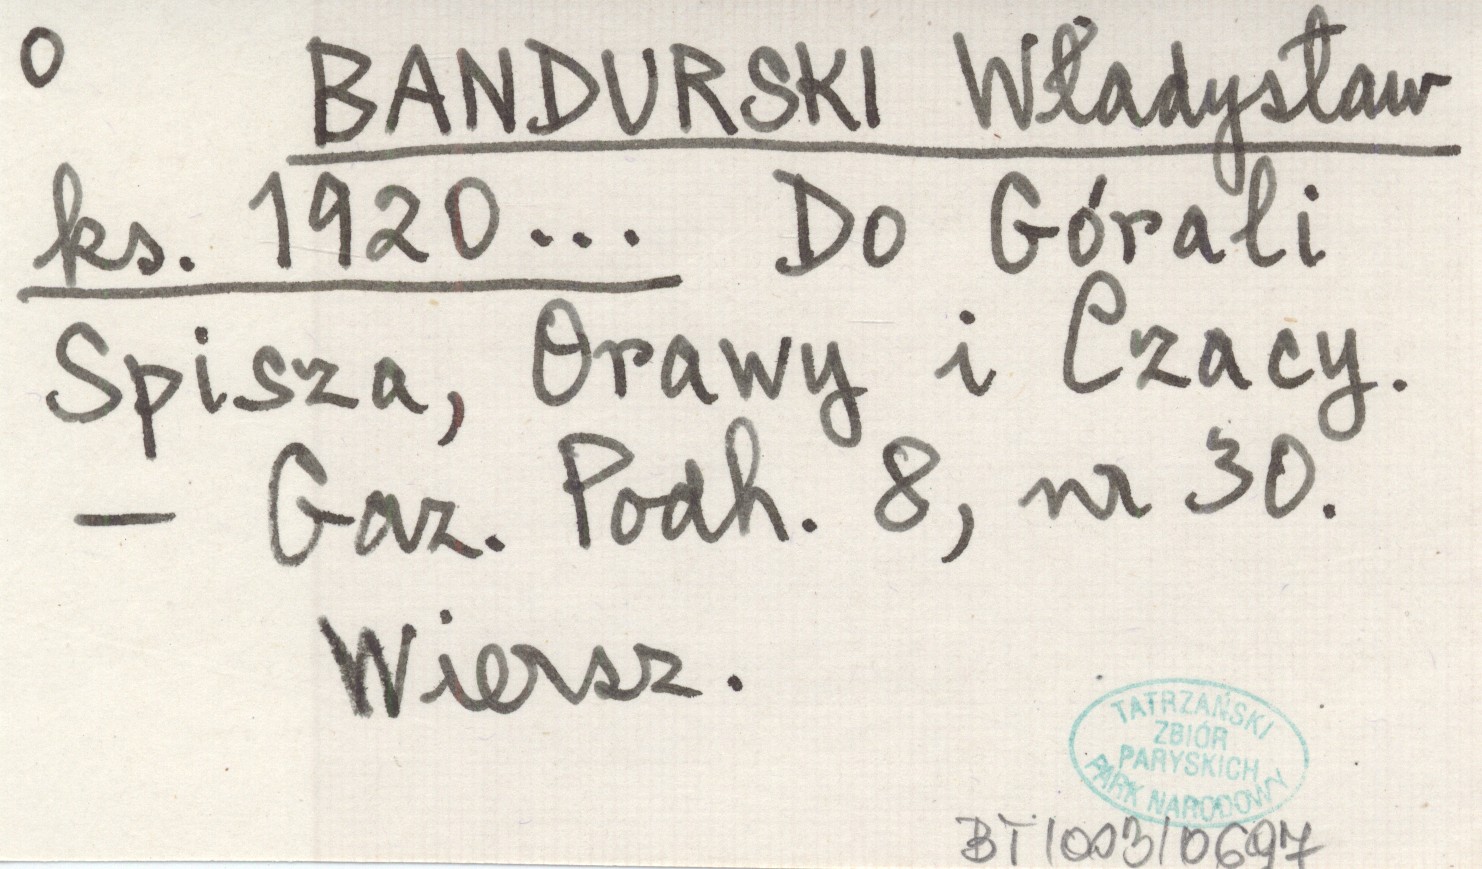 o BANDURSKI Władysław
ks. 1920... Do Górali
Spisza, Orawy i Czacy.
— Gaz. Podh. 8, nr 30.
Wiersz.
TATRZAŃSKI
ZBIÓR
PARYSKICH
PARK NARODOWY
BT/003/0697